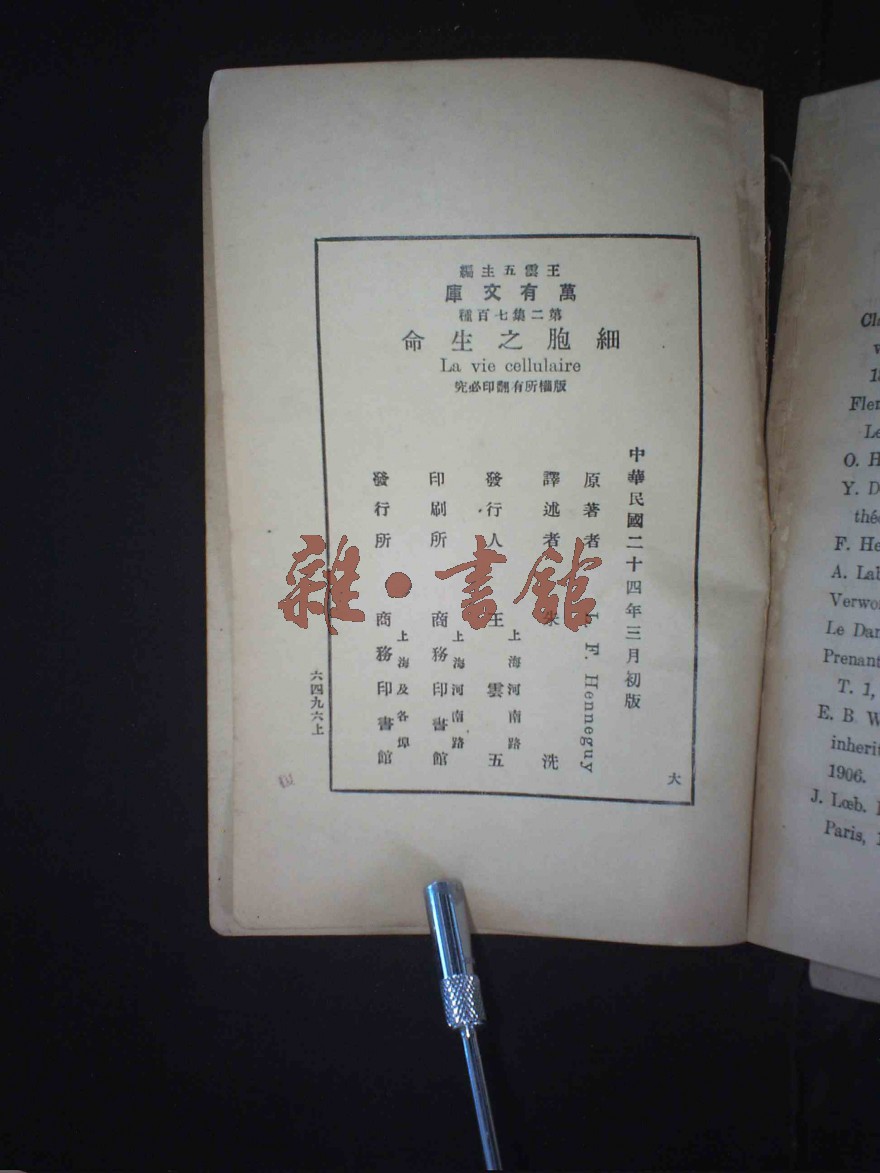 王雲五主編
萬有文庫
第二集七百種
細胞之生命
La vie cellulaire
版權所有翻印必究
中華民國二十四年三月初版
原著者 F. Henneguy
譯述者 朱洗
發行人 王雲五
上海河南路
印刷所 商務印書館
上海河南路
發行所 商務印書館
上海及各埠
六四九六上
大
雜·書館
Fle
Le
O. H
Y. D
thé
F. He
A. Lab
Verwo
Le Dan
Prenant
T. 1,
E. B. W
inherit
1906.
J. Lœb.
Paris,